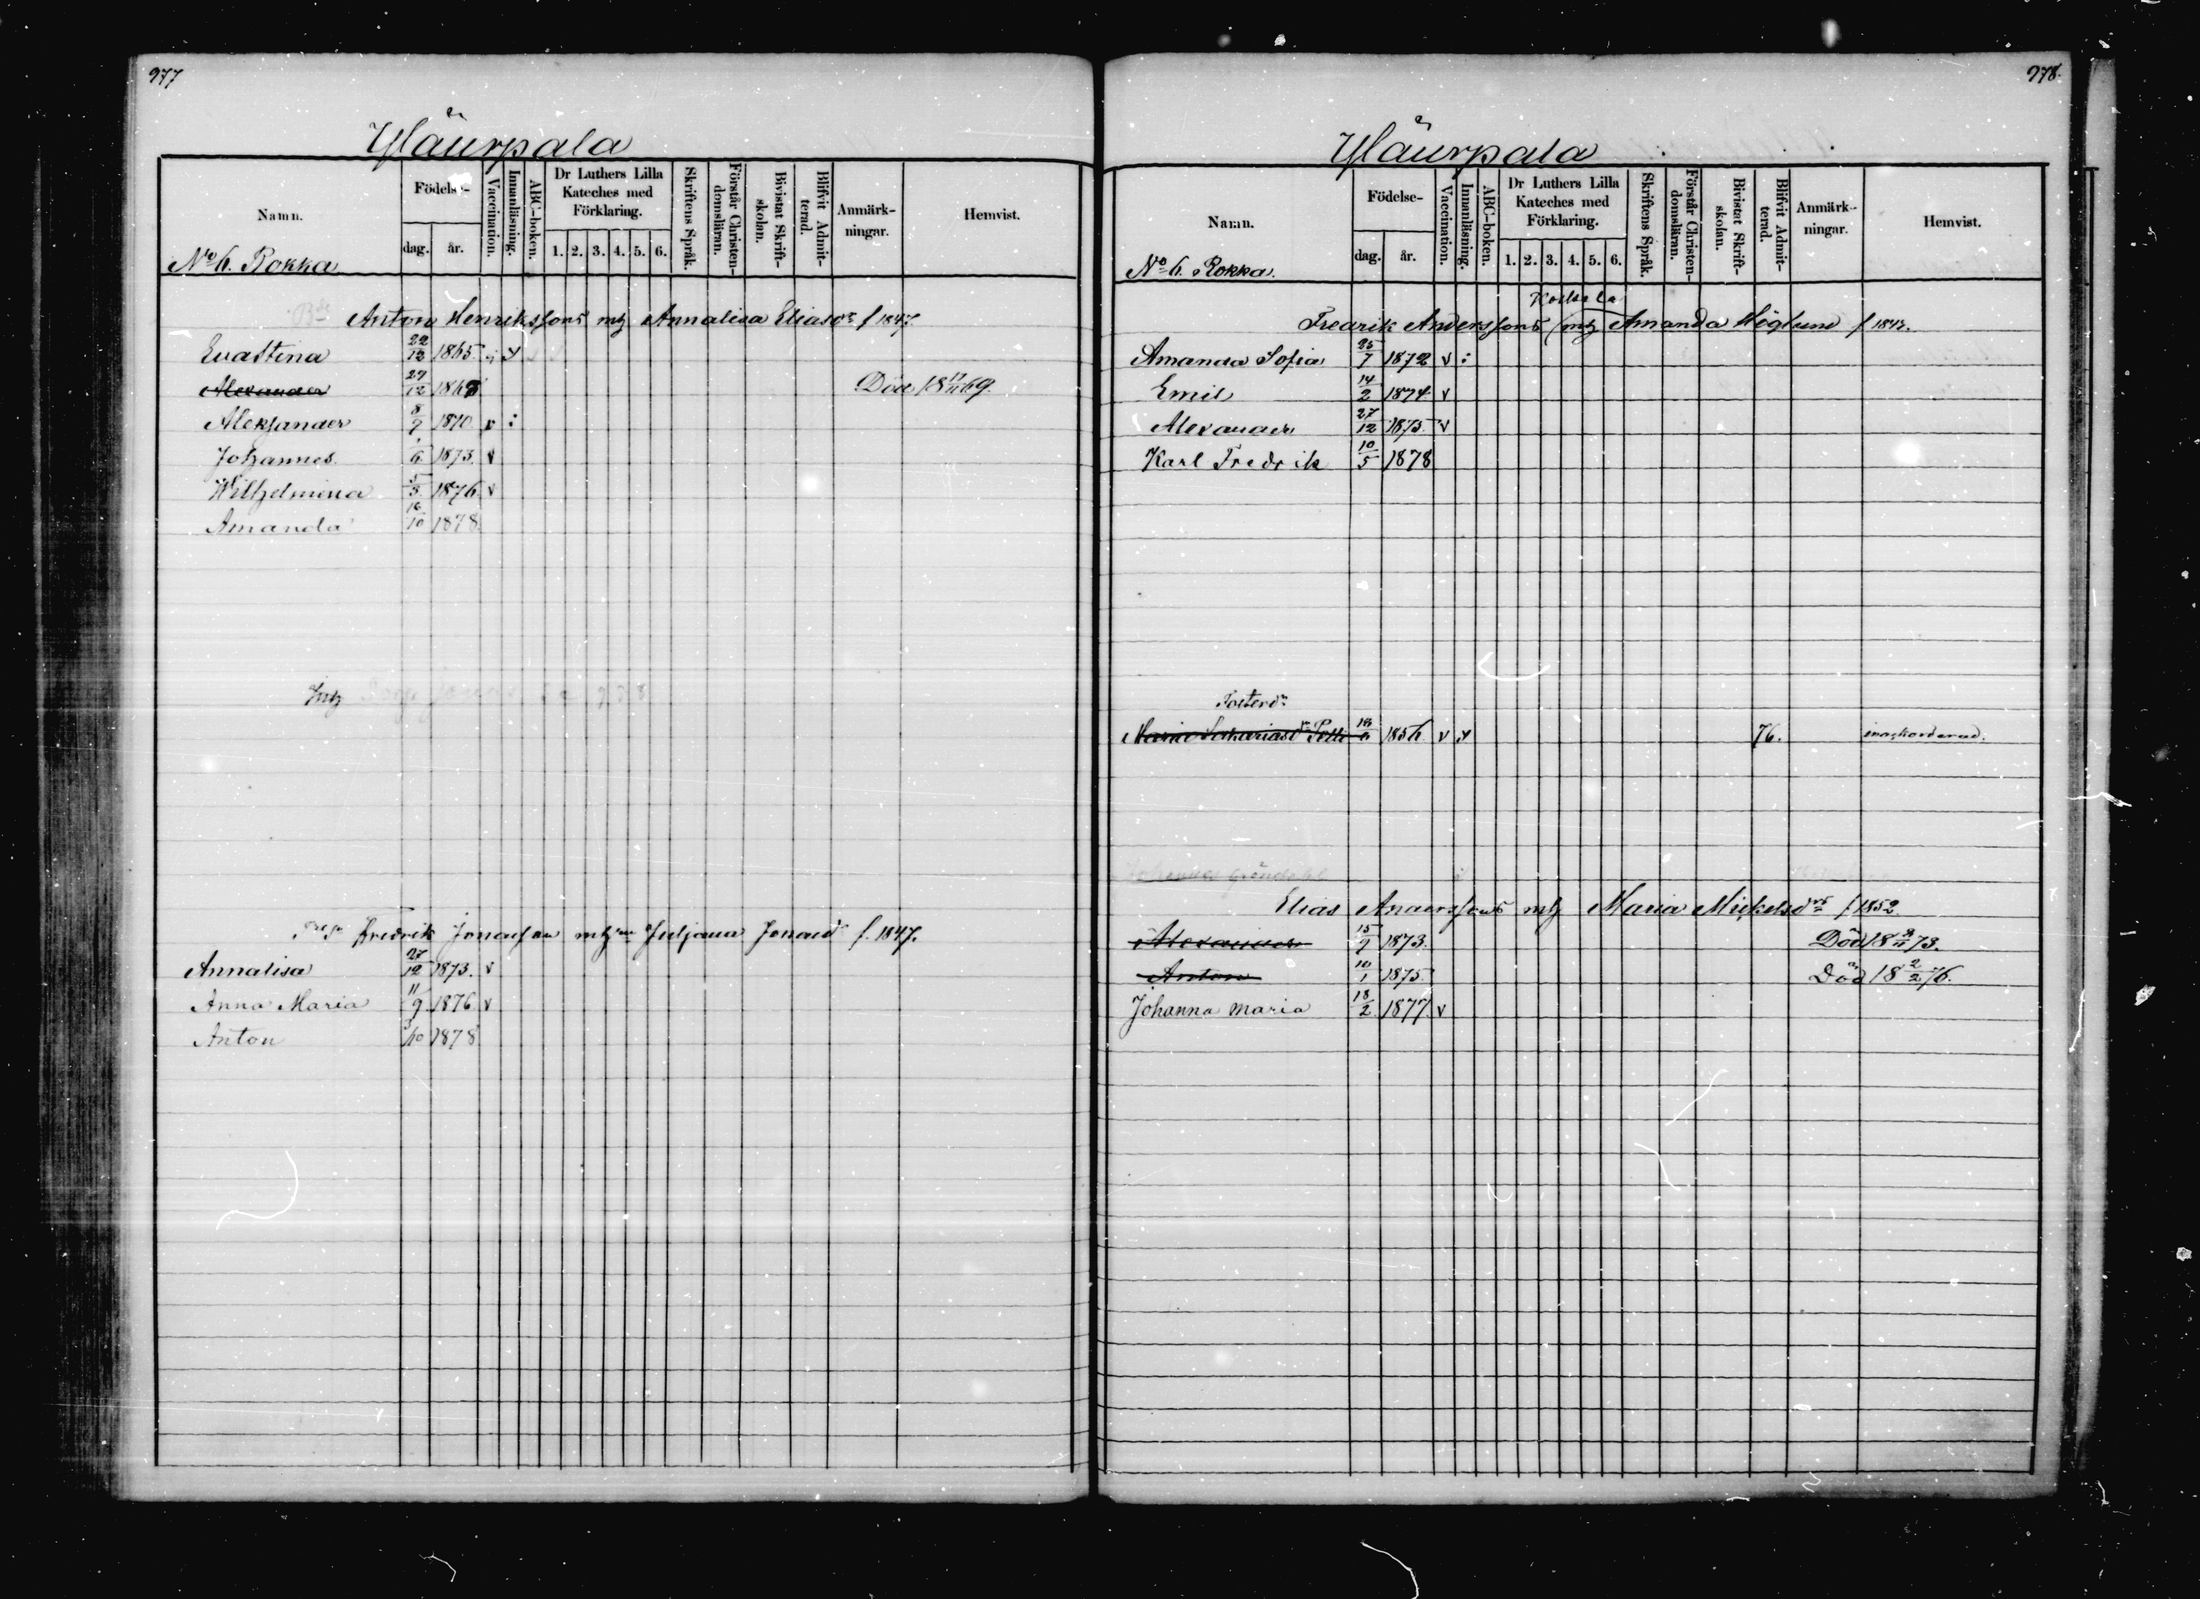 977
Yläurpala
Namn.
Födelse-
dag.
år.
Vaccination.
Innanläsning.
ABC-boken.
Dr Luthers Lilla
Kateches med
Förklaring.
1. 2. 3. 4. 5. 6.
Skriftens Språk.
Förstår Christen-
domsläran.
Bivistat Skrift-
skolan.
Blifvit Admit-
terad.
Anmärk-
ningar.
Hemvist.
No 6. Rokka
Anton Henrikssons Annalisa Eliasdr f 1847
Evastina 22/12 1865
Alexander 29/12 1868 Död 18 11/11 69.
Aleksander 8/9 1870 v :
Johannes 6 1873 v
Wilhelmina 1876 v
Amanda 16/10 1878
Inh
Fredrik Jonasson Juljana Jonasd f. 1847.
Annalisa 27/12 1873. v
Anna Maria 11/9 1876 v
Anton 3/10 1878
978.
Yläurpala
Namn.
Födelse-
dag.
år.
Vaccination.
Innanläsning.
ABC-boken.
Dr Luthers Lilla
Kateches med
Förklaring.
1. 2. 3. 4. 5. 6.
Skriftens Språk.
Förstår Christen-
domsläran.
Bivistat Skrift-
skolan.
Blifvit Admit-
terad.
Anmärk-
ningar.
Hemvist.
No 6. Rokka.
Fredrik Anderssons Amanda Höglund f 1847.
Amanda Sofia 25/7 1872 v :
Emil 14/2 1874 v
Alexander 27/12 1875 v
Karl Fredrik 10/5 1878
Fosterd
Maria Sakariasdr 1856 v 76.
Johannes Gröndahl
Elias Anderssons Maria Mickelsdrs f 1852
Alexander 15/9 1873. Död 18 73.
Anton 10/1 1875 Död 18 2/2 76.
Johanna Maria 18/2 1877 v